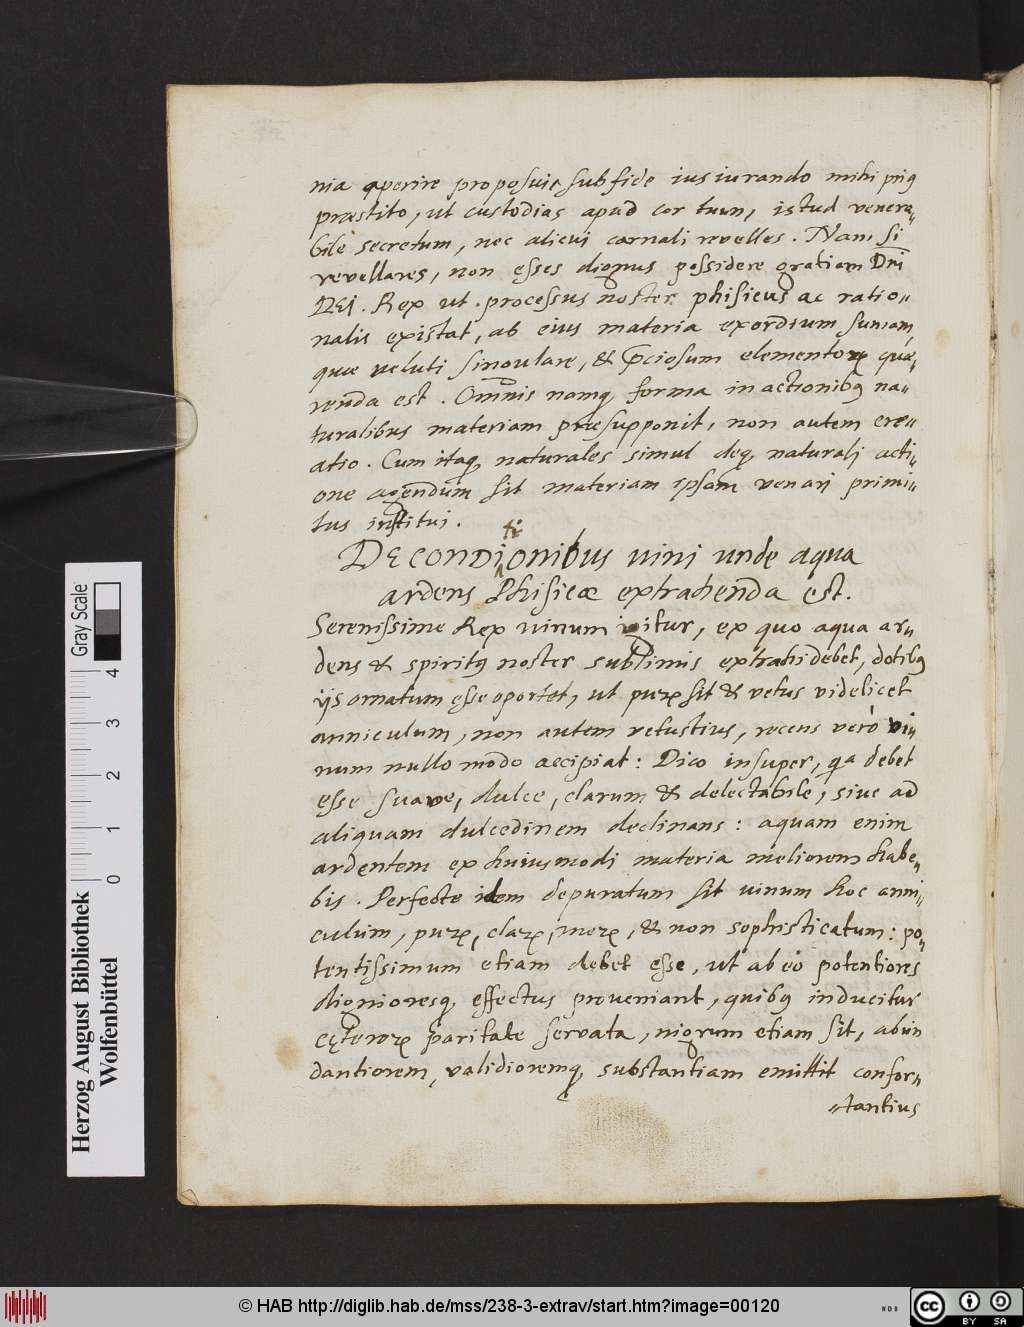 nia aperire proposui, sub fide iusiurando mihi priꝰ
præstito, ut custodias apud cor tuum, istud venera-
bile secretum, nec alicui carnali revelles. Nam si
revellares, non esses dignus possidere gratiam Dni
DEI. Rex ut processus noster phisicus ac ratio-
nalis existat, ab eius materia exordium sumam,
quæ veluti singulare, & p̄ciosum elementoꝝ quæ-
renda est. Omnis namqꝫ forma in actionibꝰ na-
turalibus materiam præsupponit, non autem cre-
atio. Cum itaqꝫ naturales simul deqꝫ naturali acti-
one agendum sit materiam ipsam venari primi-
tus institui.
DE CONDIti͏onibus vini unde aqua
ardens Phisicæ extrahenda est.
Serenissime Rex vinum igitur, ex quo aqua ar-
dens & spiritꝰ noster sublimis extrahi debet, dotibꝰ
ijs ornatum esse oportet, ut puꝝ sit & vetus videlicet
anniculum, non autem vetustius, recens verò vi-
num nullo modo accipiat: Dico insuper, qa debet
esse suave, dulce, clarum & delectabile, sive ad
aliquam dulcedinem declinans: aquam enim
ardentem ex huiusmodi materia meliorem habe-
bis. Perfecte idem depuratum sit vinum hoc anni-
culum, puꝝ, claꝝ, meꝝ, & non sophisticatum: po-
tentissimum etiam debet esse, ut ab eo potentiores
dignioresqꝫ effectus proveniant, quibꝰ inducitur
cęteroꝝ paritate servata, nigrum etiam sit, abun
dantiorem, validioremqꝫ substantiam emittit confor-
-tantius
Herzog August Bibliothek
Wolfenbüttel
0 1 2 3 4
Gray Scale
© HAB http://diglib.hab.de/mss/238-3-extrav/start.htm?image=00120
NDB
cc BY SA